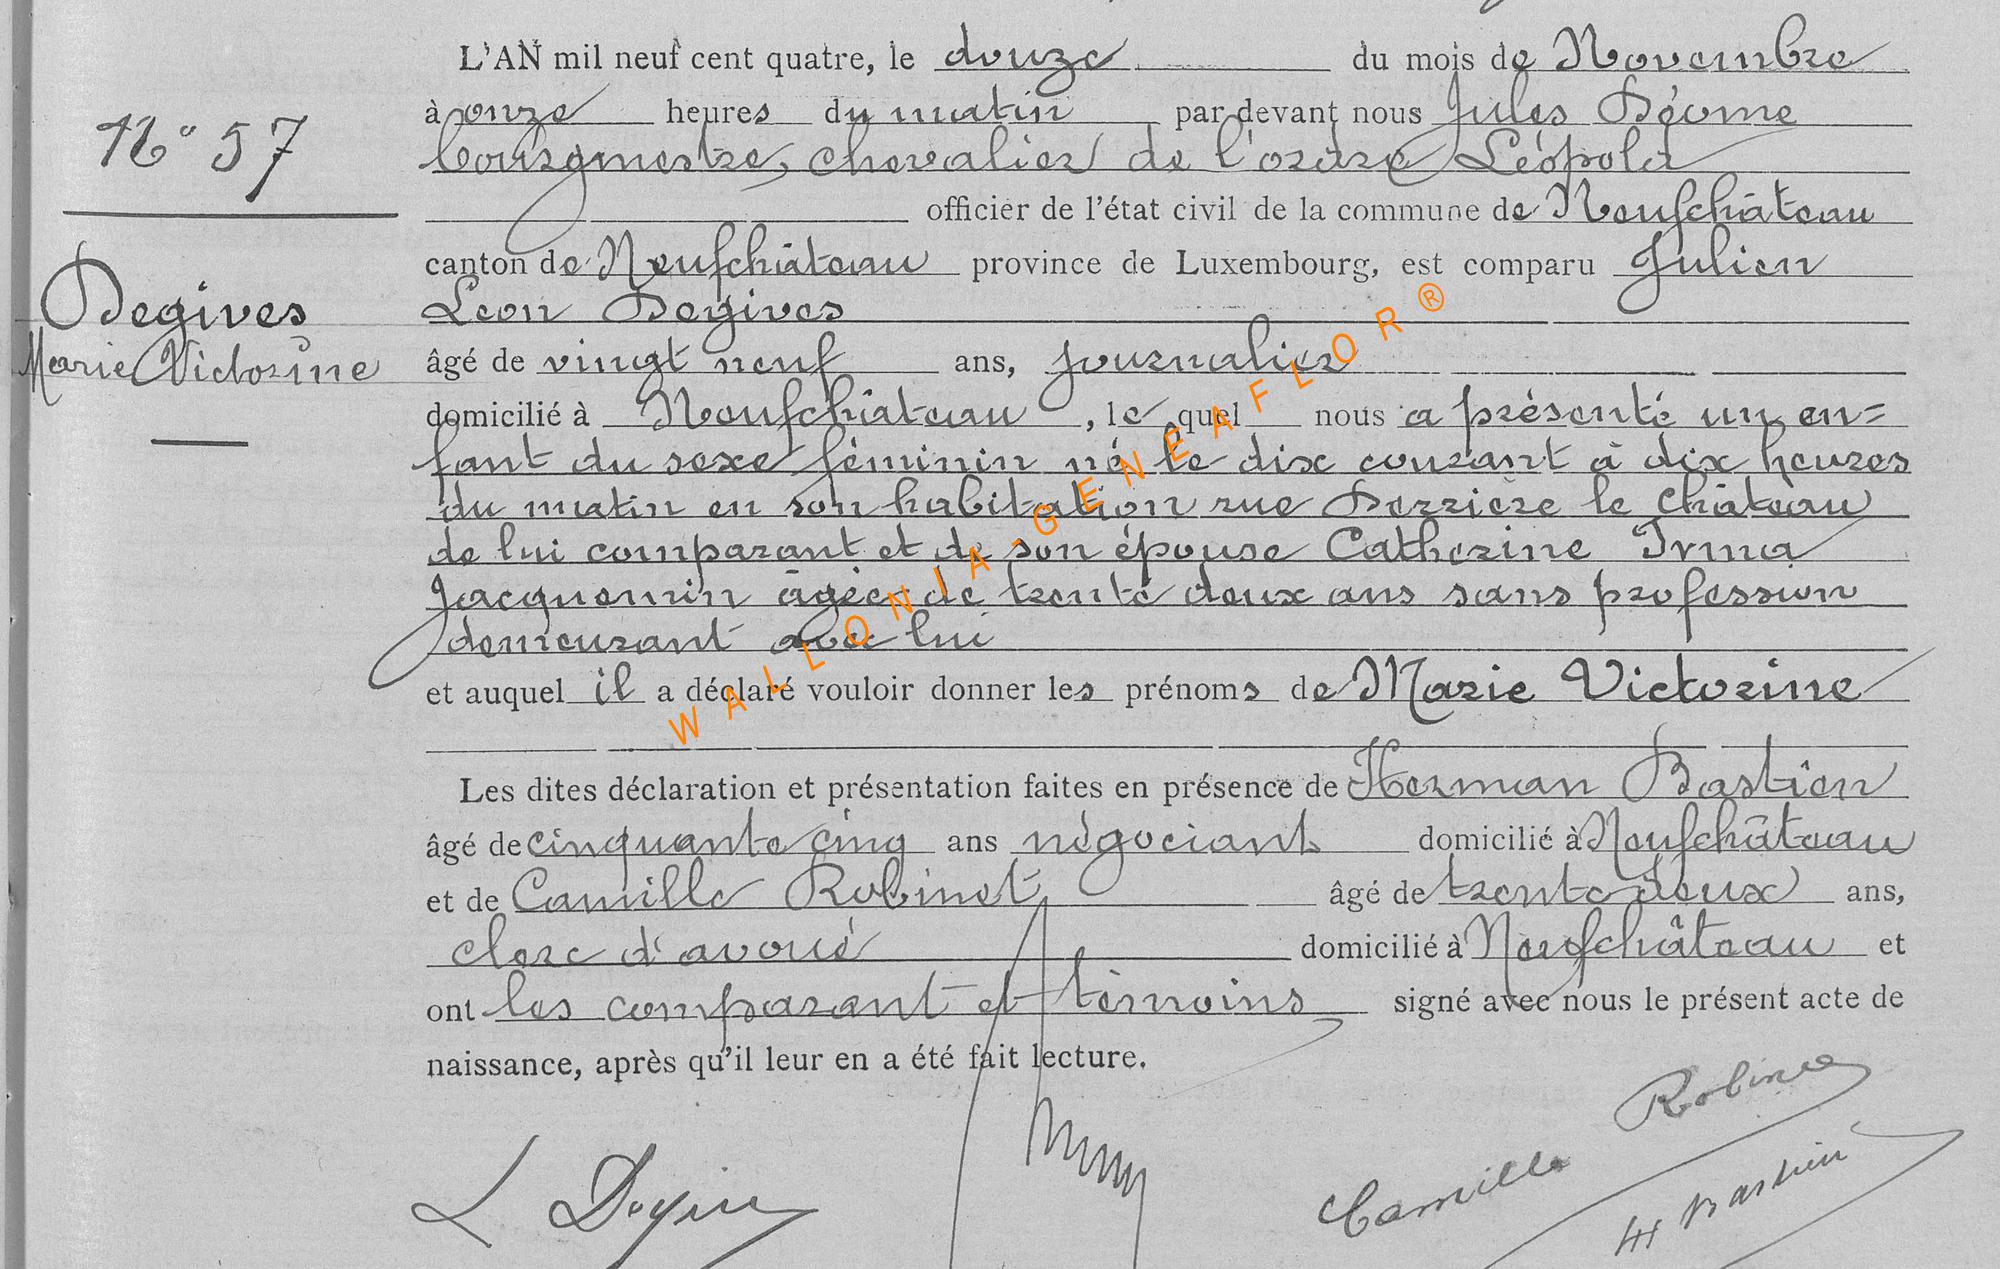 L'AN mil neuf cent quatre, le douze du mois de Novembre
N° 57
à onze heures du matin par devant nous Jules
bourgmestre, chevalier de l'ordre Léopold
officier de l'état civil de la commune de Neufchâteau
canton de Neufchâteau province de Luxembourg, est comparu Julien
Degives
Marie Victorine
Léon Degives
âgé de vingt neuf ans, journalier
domicilié à Neufchâteau, le quel nous a présenté un en=
fant du sexe féminin né le dix courant à dix heures
du matin en son habitation rue Derrière le Château
de lui comparant et de son épouse Catherine Irma
Jacquemin âgée de trente deux ans sans profession
demeurant avec lui
et auquel il a déclaré vouloir donner les prénoms de Marie Victorine
Les dites déclaration et présentation faites en présence de Herman Bastien
âgé de cinquante cinq ans négociant domicilié à Neufchâteau
et de Camille Robinet âgé de trente deux ans,
clerc d'avoué domicilié à Neufchâteau et
ont les comparant et témoins signé avec nous le présent acte de
naissance, après qu'il leur en a été fait lecture.
L Degives
Camille Robinet
H Bastien
WALLONIA-GENEAFLOR®